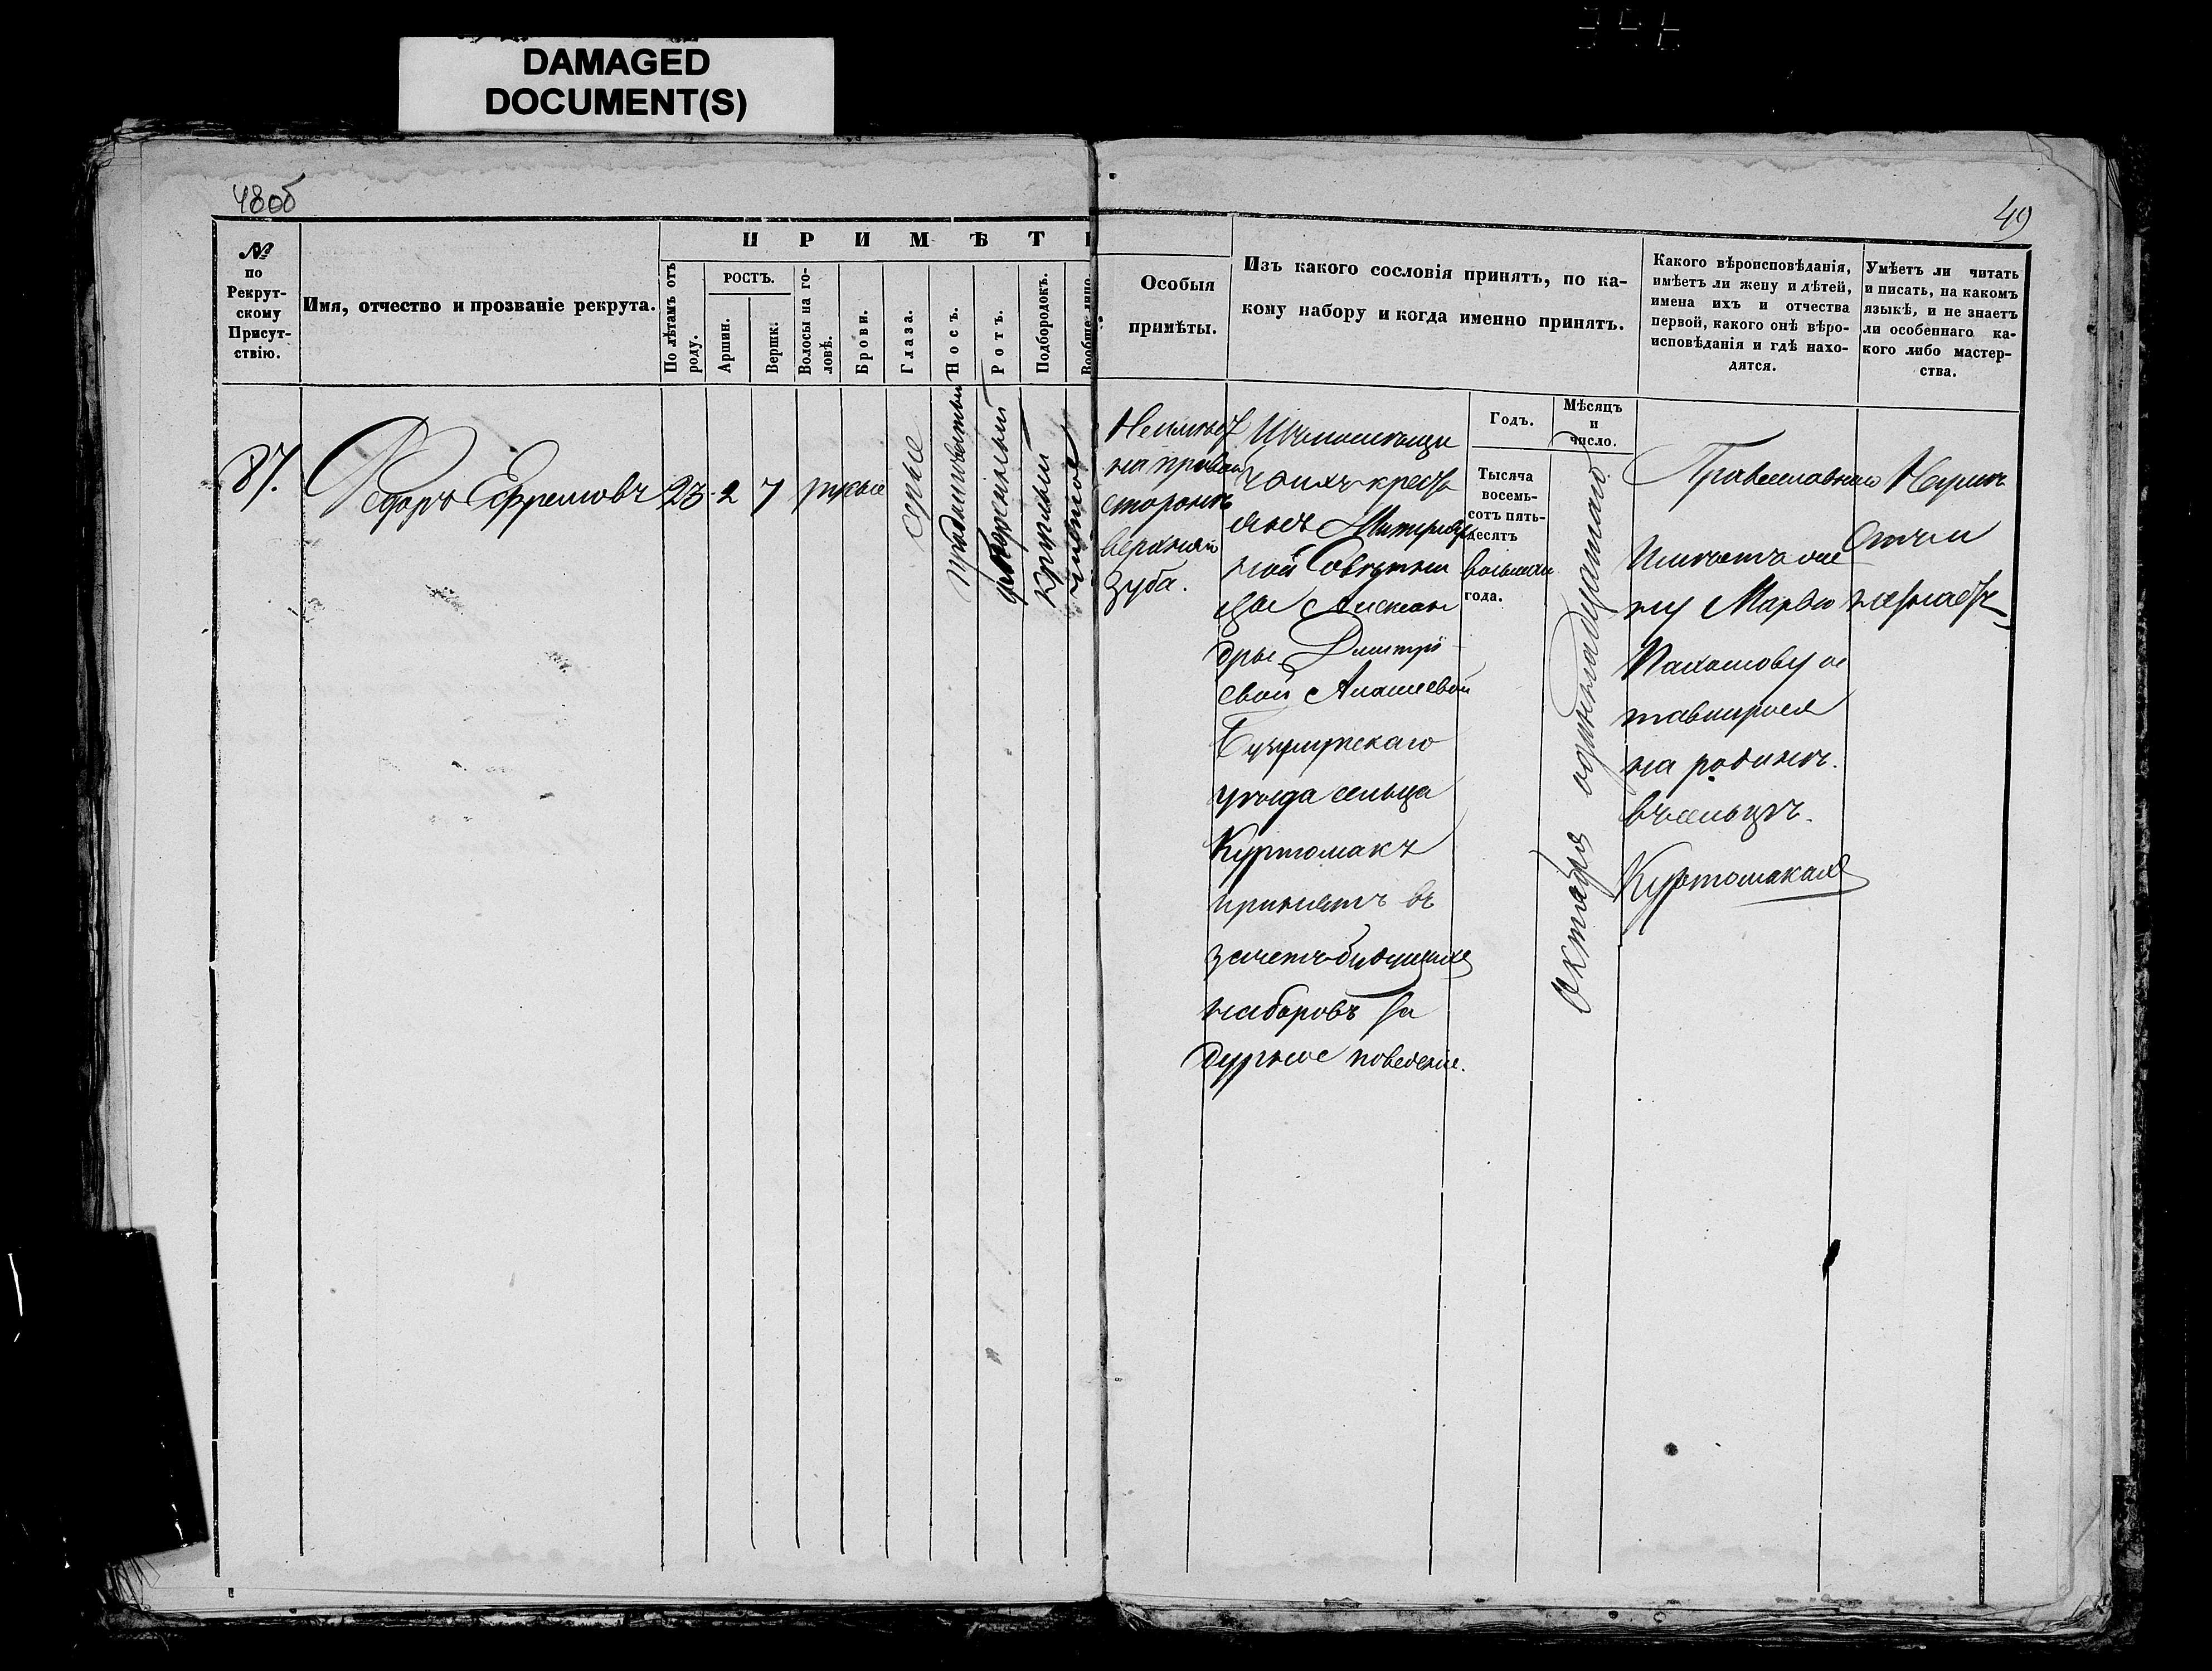 DAMAGED
DOCUMENT(S)
48об
49
№
по
Рекрут-
скому
Присут-
ствію.
Имя, отчество и прозваніе рекрута.
ПРИМѢТ
По лѣтамъ отъ
роду.
РОСТЪ.
Аршин.
Вершк:
Волосы на го-
ловѣ.
Брови.
Глаза.
Носъ.
Ротъ.
Подбородокъ.
Вообще лицо.
Особыя
примѣты.
Изъ какого сословія принятъ, по ка-
кому набору и когда именно принятъ.
Годъ.
Мѣсяцъ
и
число.
Какого вѣроисповѣданія,
имѣетъ ли жену и дѣтей,
имена ихъ и отчества
первой, какого онѣ вѣро-
исповѣданія и гдѣ нахо-
дятся.
Умѣетъ ли читать
и писать, на какомъ
языкѣ, и не знаетъ
ли особеннаго ка-
кого либо мастер-
ства.
87.
Федоръ Ефремовъ
23
2
7
русые
серые
умѣренный
круглый
чистое
Неимѣетъ
на правой
сторонѣ
верхняго
зуба.
Изъ помѣщи
чьихъ кресть
янъ
ной Совѣтни
цы Алексан
дры Дмитрі
евой
Бугурусскаго
уѣзда сельца
Куртомакъ
принятъ въ
зачетъ будущихъ
наборовъ за
дурное поведеніе.
Тысяча
восемь-
сотъ пять-
десятъ
восьмаго
года.
Октября одиннадцатаго
Православнаго
Имѣетъ же
ну Марью
Пахомову ос
тавшуюся
на родинѣ
въ сельцѣ
Куртомакахъ
Неумѣ
етъ и
незнаетъ